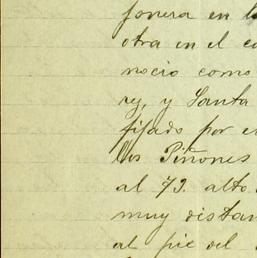 ponera en l
otra en el c
nocio como
rey, y Santa
fijado por e
los Piñones
al 73. alto
muy distan
al pie del